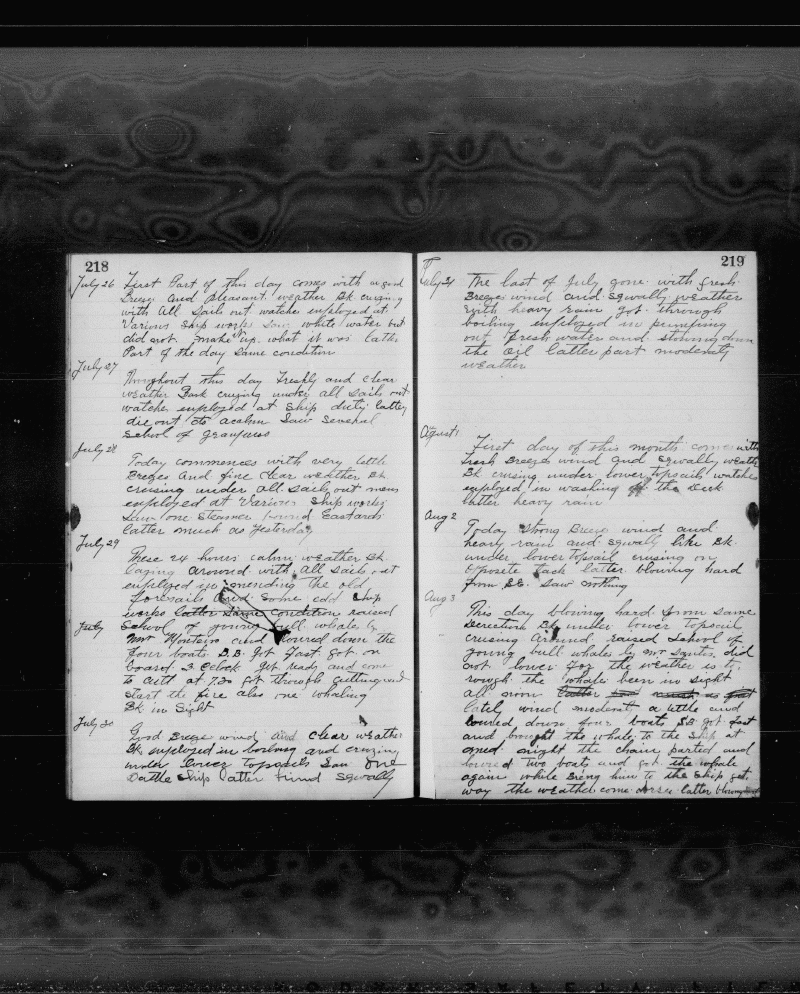 218
July 26 First Part of this day comes with a good
Breeze and Pleasant weather Bk cruzing
with All Sails out watches employed at
Various Ship works Saw white water but
did not make up what it was latter
Part of the day Same condition
July 27
Throughout this day Freshly and clear
weather Bark cruzing under all Sails out
watches employed at Ship duty latter
die out to acalm Saw Several
School of grampuss
July 28
Today commences with very little
Breeze and fine clear weather Bk
cruising under all Sail out men
employed at Various Ship works
Saw one Steamer bound Eastards
latter much as Yesterday
July 29
These 24 hours calm weather Bk
lazing around with all Sails out
employed in mending the old
foresails and some odd Ship
works latter Same condition raised
July School of young bull whales by
Mr Monteiro and loured down the
four boats B.B. Got fast got on
board 3 Oclock Got ready and come
to cutt at 7.30 got through cutting and
start the fire also one whaling
Bk in Sight
July 30
Good Breeze wind and clear weather
Bk employed in boiling and cruzing
under lower topsails Saw one
Battle Ship latter wind Sqwally
219
July 31 The last of July gone with fresh
Breeze wind and sqwally weather
with heavy rain got through
boiling employed in pumping
out fresh water and stowing down
the oil latter part moderatly
weather
August 1
First day of this month comes with
fresh Breeze wind and Sqwally weath
Bk cruising under lower topsails watches
employed in washing off the deck
latter heavy rain
Aug 2
Today Strong Breeze wind and
heavy rain and sqwally like Bk
under lower topsail cruising on
oposete tack latter blowing hard
from SE. Saw nothing
Aug 3
This day blowing hard from same
derection Bk under lower topsail
cruising around raised School of
young bull whales by Mr Santos did
not lower for the weather is to
rough the whales been in sight
all noon latter
lately wind moderat a little and
loured down four boats SB got fast
and bought the whale to the Ship at
and night the chain parted and
lowered two boats and got the whale
again while bring him to the Ship get
way the weather come worse latter blowing